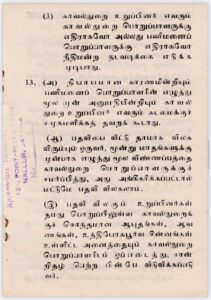 (3) காவல்துறை உறுப்பினர் எவரும்
காவற் துறை பொறுப்பாளருக்கு
எதிராகவோ அல்லது பணிமனைப்
பொறுப்பாளருக்கு எதிராகவோ
நீதிமன்ற நடவடிக்கை எடுக்க
முடியாது.
13. (அ) நியாயமான காரணமின்றியும்
பணிமனைப் பொறுப்பாளரின் எழுத்து
மூலமுன் அனுமதியின்றியும் காவல்
துறை உறுப்பினர் எவரும் கடமைக்குச்
சமூகமளிக்கத் தவறக் கூடாது.
(ஆ) பதவியை விட்டு தாமாக விலக
விரும்பும் ஏதுவர், மூன்று மாதங்களுக்கு
முன்பாக எழுத்து மூல விண்ணப்பத்தை
காவல்துறை பொறுப்பாளருக்குச்
சமர்ப்பித்து, அது அங்கீகரிக்கப்பட்டால்
மட்டுமே பதவி விலகலாம்.
(இ) பதவி விலகும் உறுப்பினர்கள்
தமது பொறுப்பிலுள்ள காவல்துறைக்
குச் சொந்தமான ஆயுதங்கள், ஆவ
ணங்கள், உத்தியோகபூர்வ சின்னங்கள்
உள்ளிட்ட அனைத்தையும் காவல்துறை
பொறுப்பாளரிடம் ஒப்படைத்து, சான்
றிதழ் பெற்ற பின்பே விடுவிக்கப்படு
வர்.
NALLUR,
No.